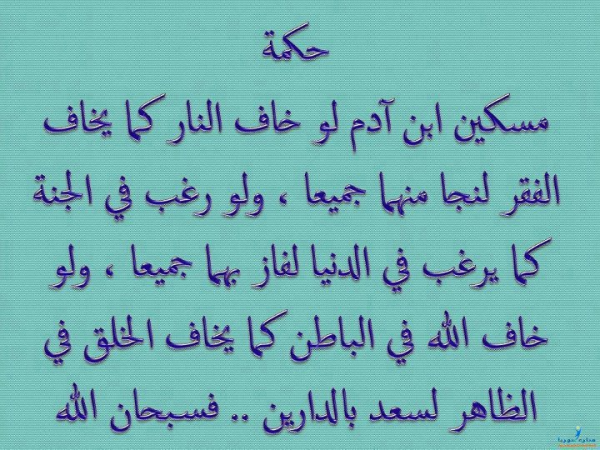 حكمة
مسكين ابن آدم لو خاف النار كما يخاف
الفقر لنجا منهما جميعا ، ولو رغب في الجنة
كما يرغب في الدنيا لفاز بهما جميعا ، ولو
خاف الله في الباطن كما يخاف الخلق في
الظاهر لسعد بالدارين .. فسبحان الله